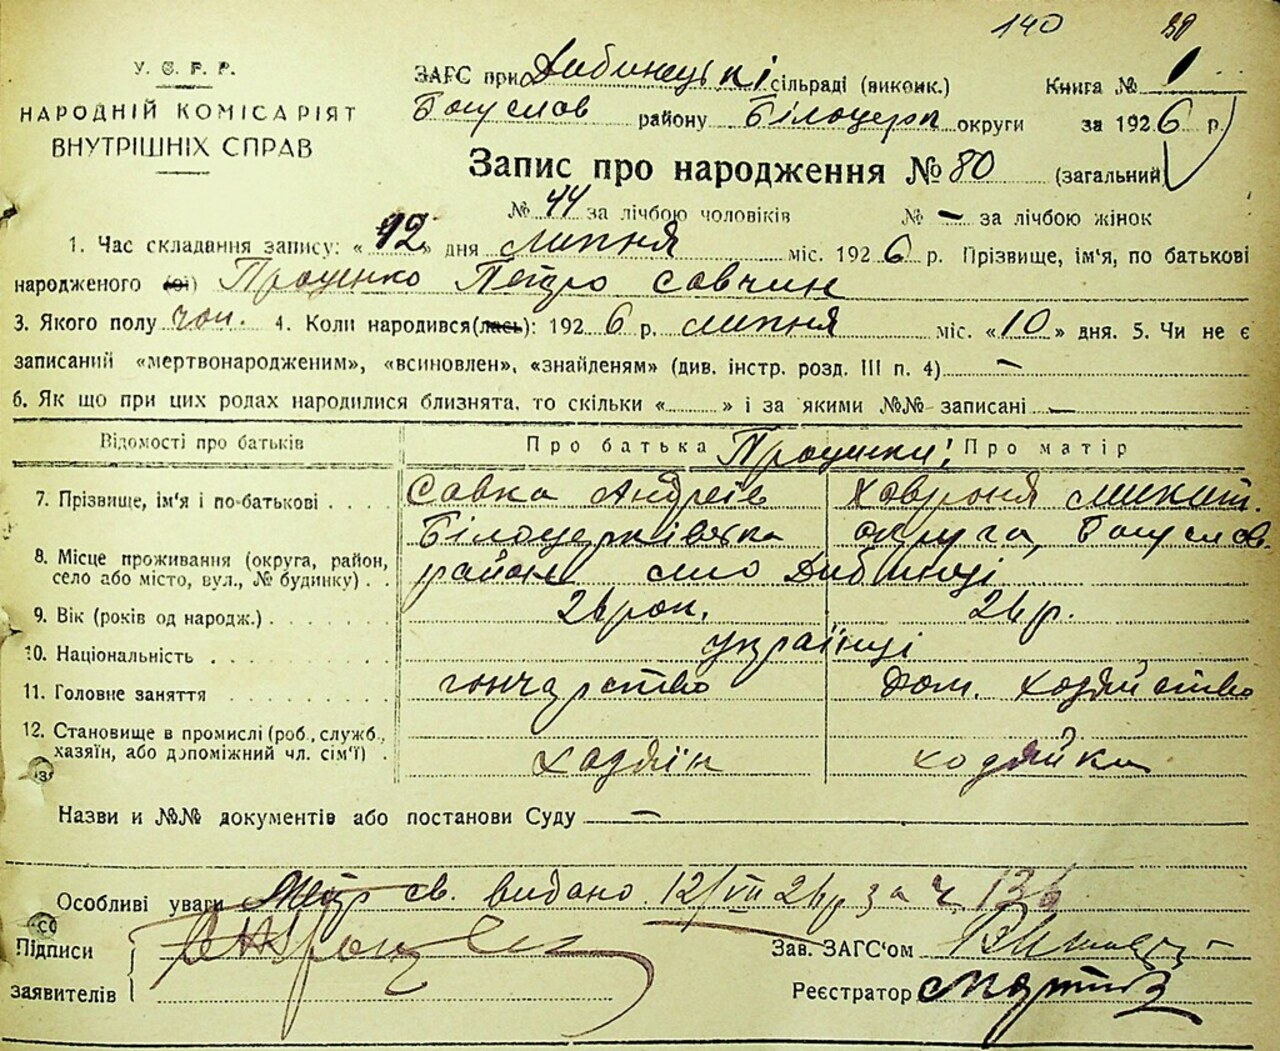 140 80
У. С. Р. Р.
НАРОДНІЙ КОМІСАРІЯТ
ВНУТРІШНІХ СПРАВ
ЗАГС при Дибинецькі сільраді (виконк.) Книга № 1
Богуслав району Білоцерк округи за 1926 р.
Запис про народження № 80 (загальний)
№ 44 за лічбою чоловіків № — за лічбою жінок
1. Час складання запису: «12» дня липня міс. 1926 р. Прізвище, ім'я, по батькові
народженого (ої) Проценко Петро Савчин
3. Якого полу чол. 4. Коли народився(лась): 1926 р. липня міс. «10» дня. 5. Чи не є
записаний «мертвонародженим», «всиновлен», «знайденям» (див. інстр. розд. III п. 4) —
6. Як що при цих родах народилися близнята, то скільки «........» і за якими №№ записані —
Відомості про батьків Про батька Проценки! Про матір
7. Прізвище, ім'я і по-батькові . . . . Савка Андреїв Ховроня Микит.
Білоцерківська округа, Богуслав.
8. Місце проживання (округа, район,
село або місто, вул., № будинку) . . район село Дибинці
9. Вік (років од народж.) . . . . . . . 26 рок. 26 р.
10. Національність . . . . . . . . . українці
11. Головне заняття . . . . . . . . . гончарство Дом. хозяйство
12. Становище в промислі (роб., служб.,
хазяїн, або допоміжний чл. сім'ї) . хозяїн хозяйка
Назви и №№ документів або постанови Суду —
Особливі уваги св. видано 12/VII 26 р за ч. 136
Підписи Зав. ЗАГС'ом
заявителів Реєстратор